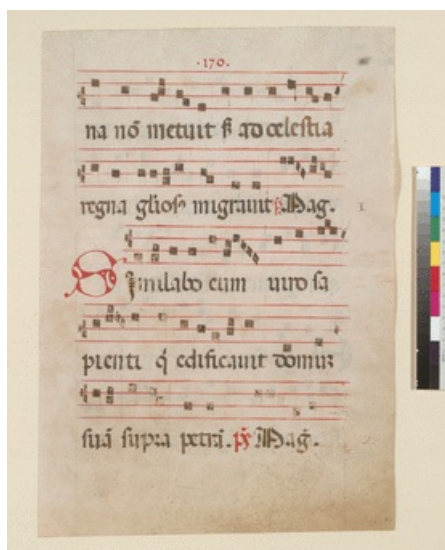 ·170·
na nō metuit sꝫ ad celestia
regna glios⁹ migravit ps̄ Mag.
Similabo eum viro sa
pienti q̄ edificavit domū
suā supra petrā. ps̄ Mag.